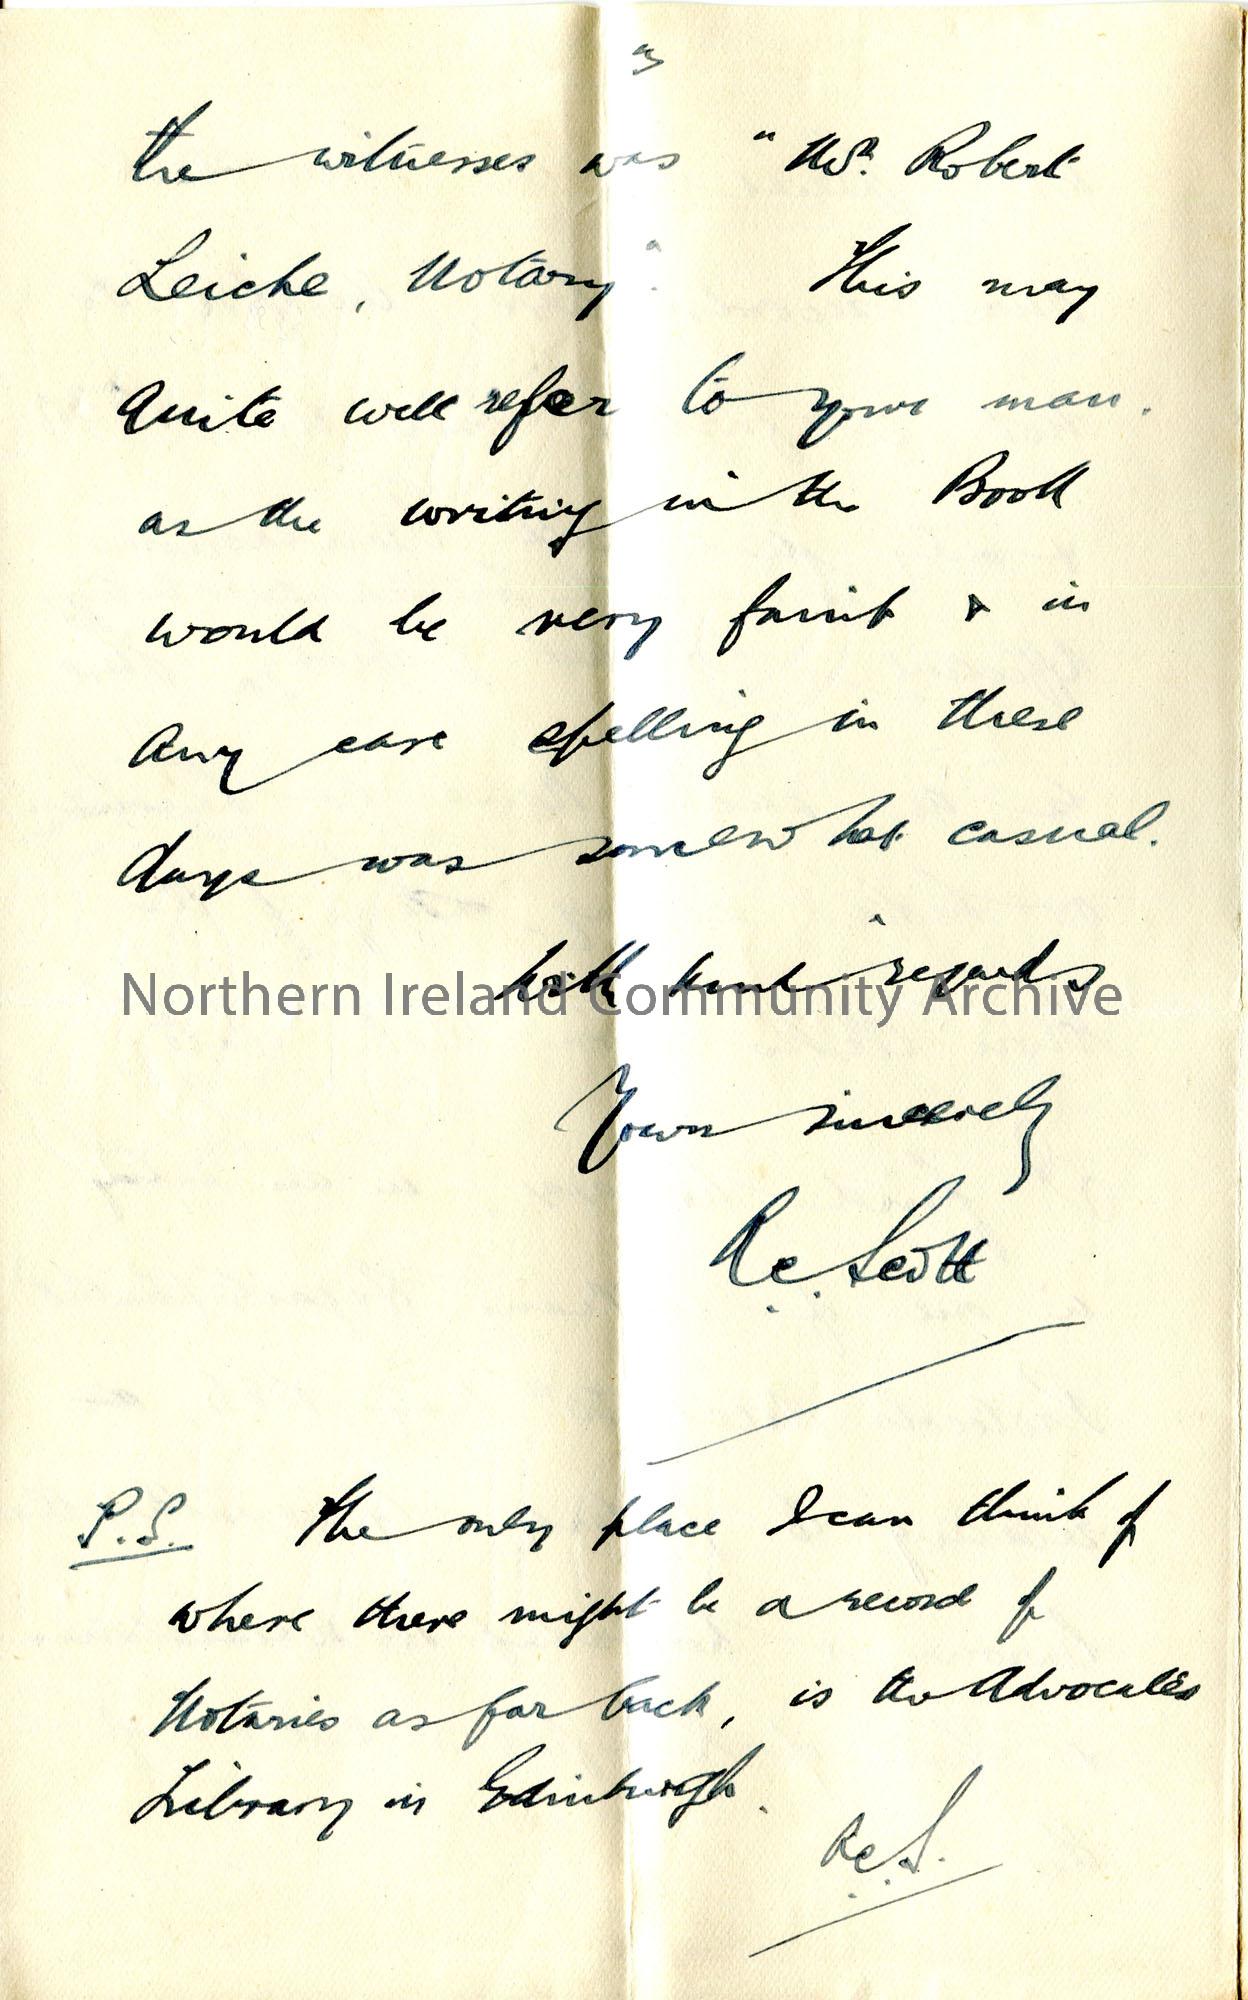 3
the witnesses was "Mr. Robert
Leiche, Notary" This may
quite well refer to your man.
as the writing in the Book
would be very faint & in
any case spelling in these
days was somewhat casual.
with kind regards
Northern Ireland Community Archive
Yours sincerely
R.C. Scott
P.S. The only place I can think of
where there might be a record of
Notaries as far back, is the Advocates
Library in Edinburgh.
R.C.S.